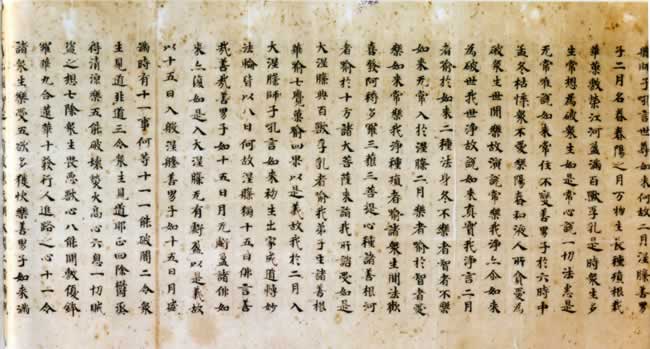 師子吼言世尊如來何故二月涅槃善男
子二月名春春陽之月万物生長種殖根栽
華菓敷榮江河盈滿百獸孚乳是時衆生多
生常想為破衆生如是常心說一切法悉是
无常唯說如來常住不變善男子於六時中
孟冬枯悴衆不愛樂陽春和液人所貪愛為
破衆生世間樂故演說常樂我淨亦尒如來
為破世我世淨故說如來真實我淨言二月
者喻於如來二種法身冬不樂者智者不樂
如來无常入於涅槃二月樂者喻於智者愛
樂如來常樂我淨種殖者喻諸衆生聞法歡
喜發阿耨多羅三藐三菩提心種諸善根河
者喻於十方諸大菩薩來詣我所諮受如是
大涅槃典百獸孚乳者喻我弟子生諸善根
華喻七覺菓喻四果以是義故我於二月入
大涅槃師子吼言如來初生出家成道轉妙
法輪皆以八日何故涅槃獨十五日佛言善
哉善哉善男子如十五日月无虧盈諸佛如
來亦復如是入大涅槃无有虧盈以是義故
以十五日入般涅槃善男子如十五日月盛
滿時有十一事何等十一一能破闇二令衆
生見道非道三令衆生見道邪正四除欝蒸
得清涼樂五能破壞熒火高心六息一切賊
盜之想七除衆生畏惡獸心八能開敷優鉢
羅華九合蓮華十發行人進路之心十一令
諸衆生樂受五欲多獲快樂善男子如來滿